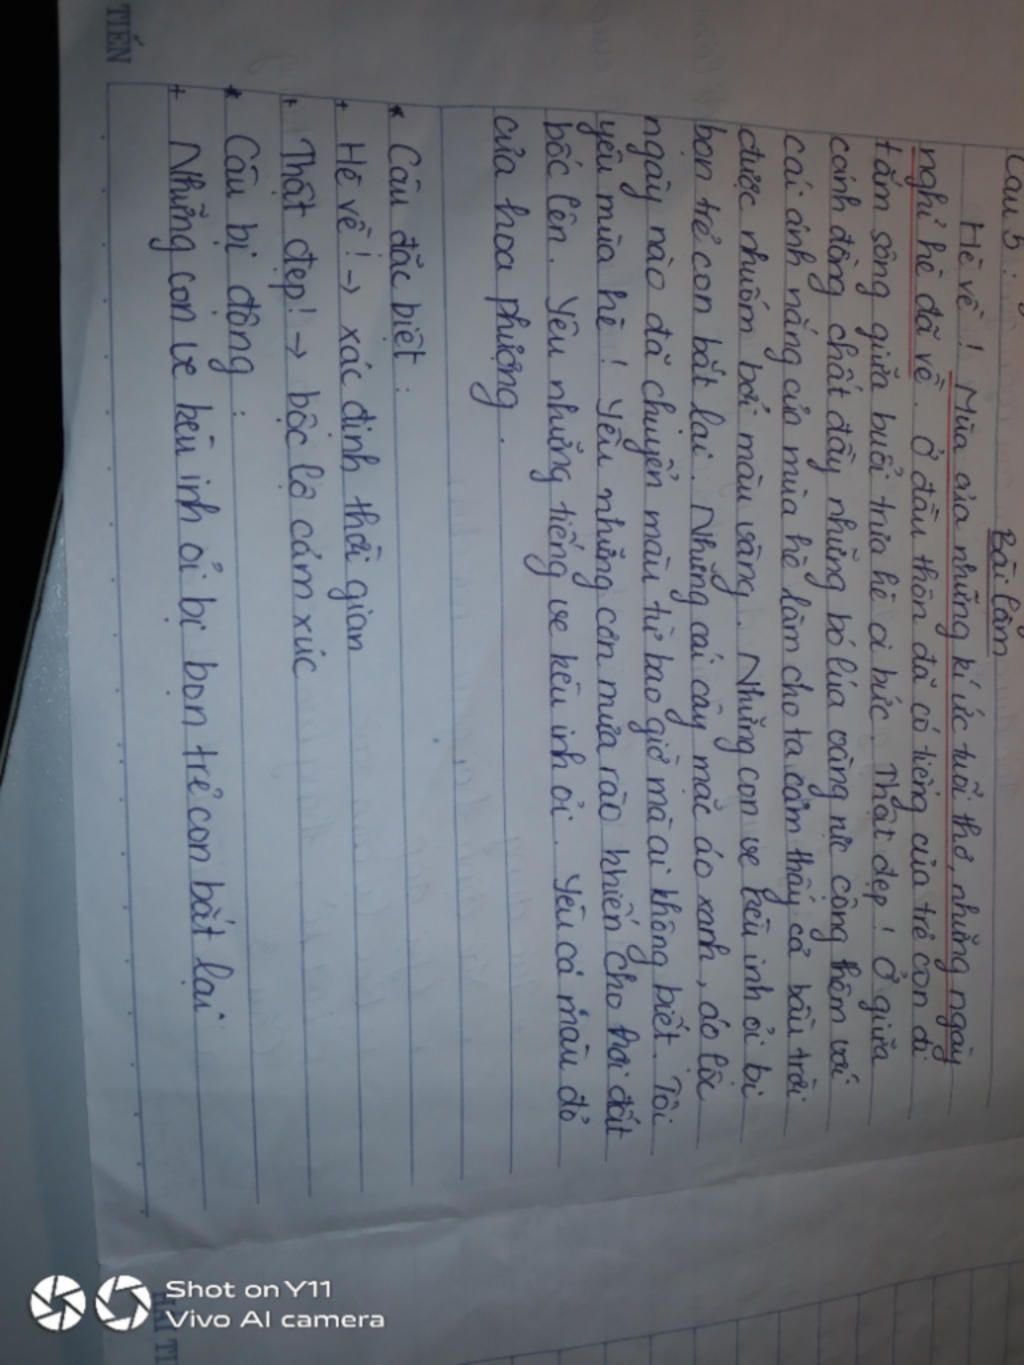 Câu 5:
Bài làm
Hè về! Mùa của những kí ức tuổi thơ, những ngày
nghỉ hè đã về. Ở đầu thôn đã có tiếng của trẻ con đi
tắm sông giữa buổi trưa hè oi bức. Thật đẹp! Ở giữa
cánh đồng chất đầy những bó lúa vàng rực cộng thêm với
cái ánh nắng của mùa hè làm cho ta cảm thấy cả bầu trời
được nhuốm bởi màu vàng. Những con ve kêu inh ỏi bị
bọn trẻ con bắt lại. Những cái cây mặc áo xanh, áo lục
ngày nào đã chuyển màu từ bao giờ mà ai không biết. Tôi
yêu mùa hè! Yêu những cơn mưa rào khiến cho hơi đất
bốc lên. Yêu những tiếng ve kêu inh ỏi. Yêu cả màu đỏ
của hoa phượng.
* Câu đặc biệt:
+ Hè về! → xác định thời gian
+ Thật đẹp! → bộc lộ cảm xúc
* Câu bị động:
+ Những con ve kêu inh ỏi bị bọn trẻ con bắt lại
TIẾN
HẢI TI
Shot on Y11
Vivo AI camera